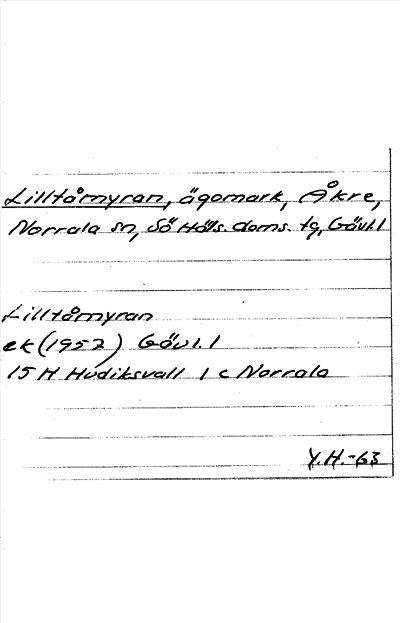 Lilltåmyran, ägomark, Åkre,
Norrala sn, Sö Häls. doms. tg, Gävl. l
Lilltåmyran
ek (1952) Gävl. l
15 H Hudiksvall 1 c Norrala
Y.H.-63